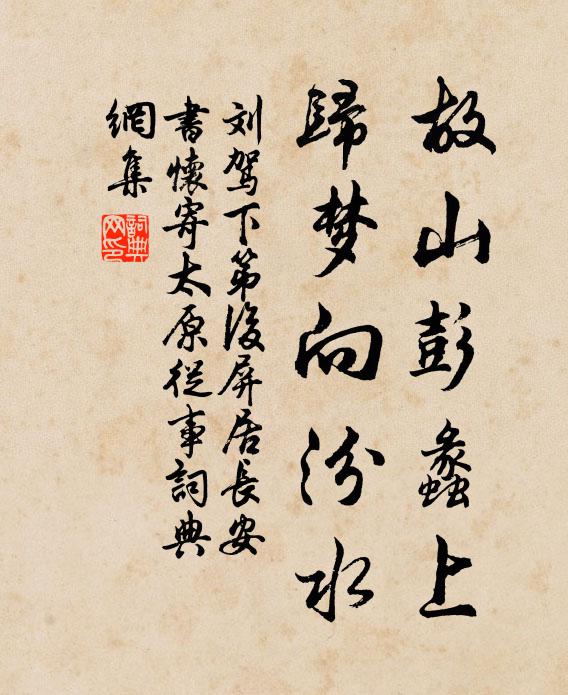 故山彭蠡上
歸梦向汾水
刘駕下第後屏居長安
書懷寄太原從事詞典
網集
詞典网印